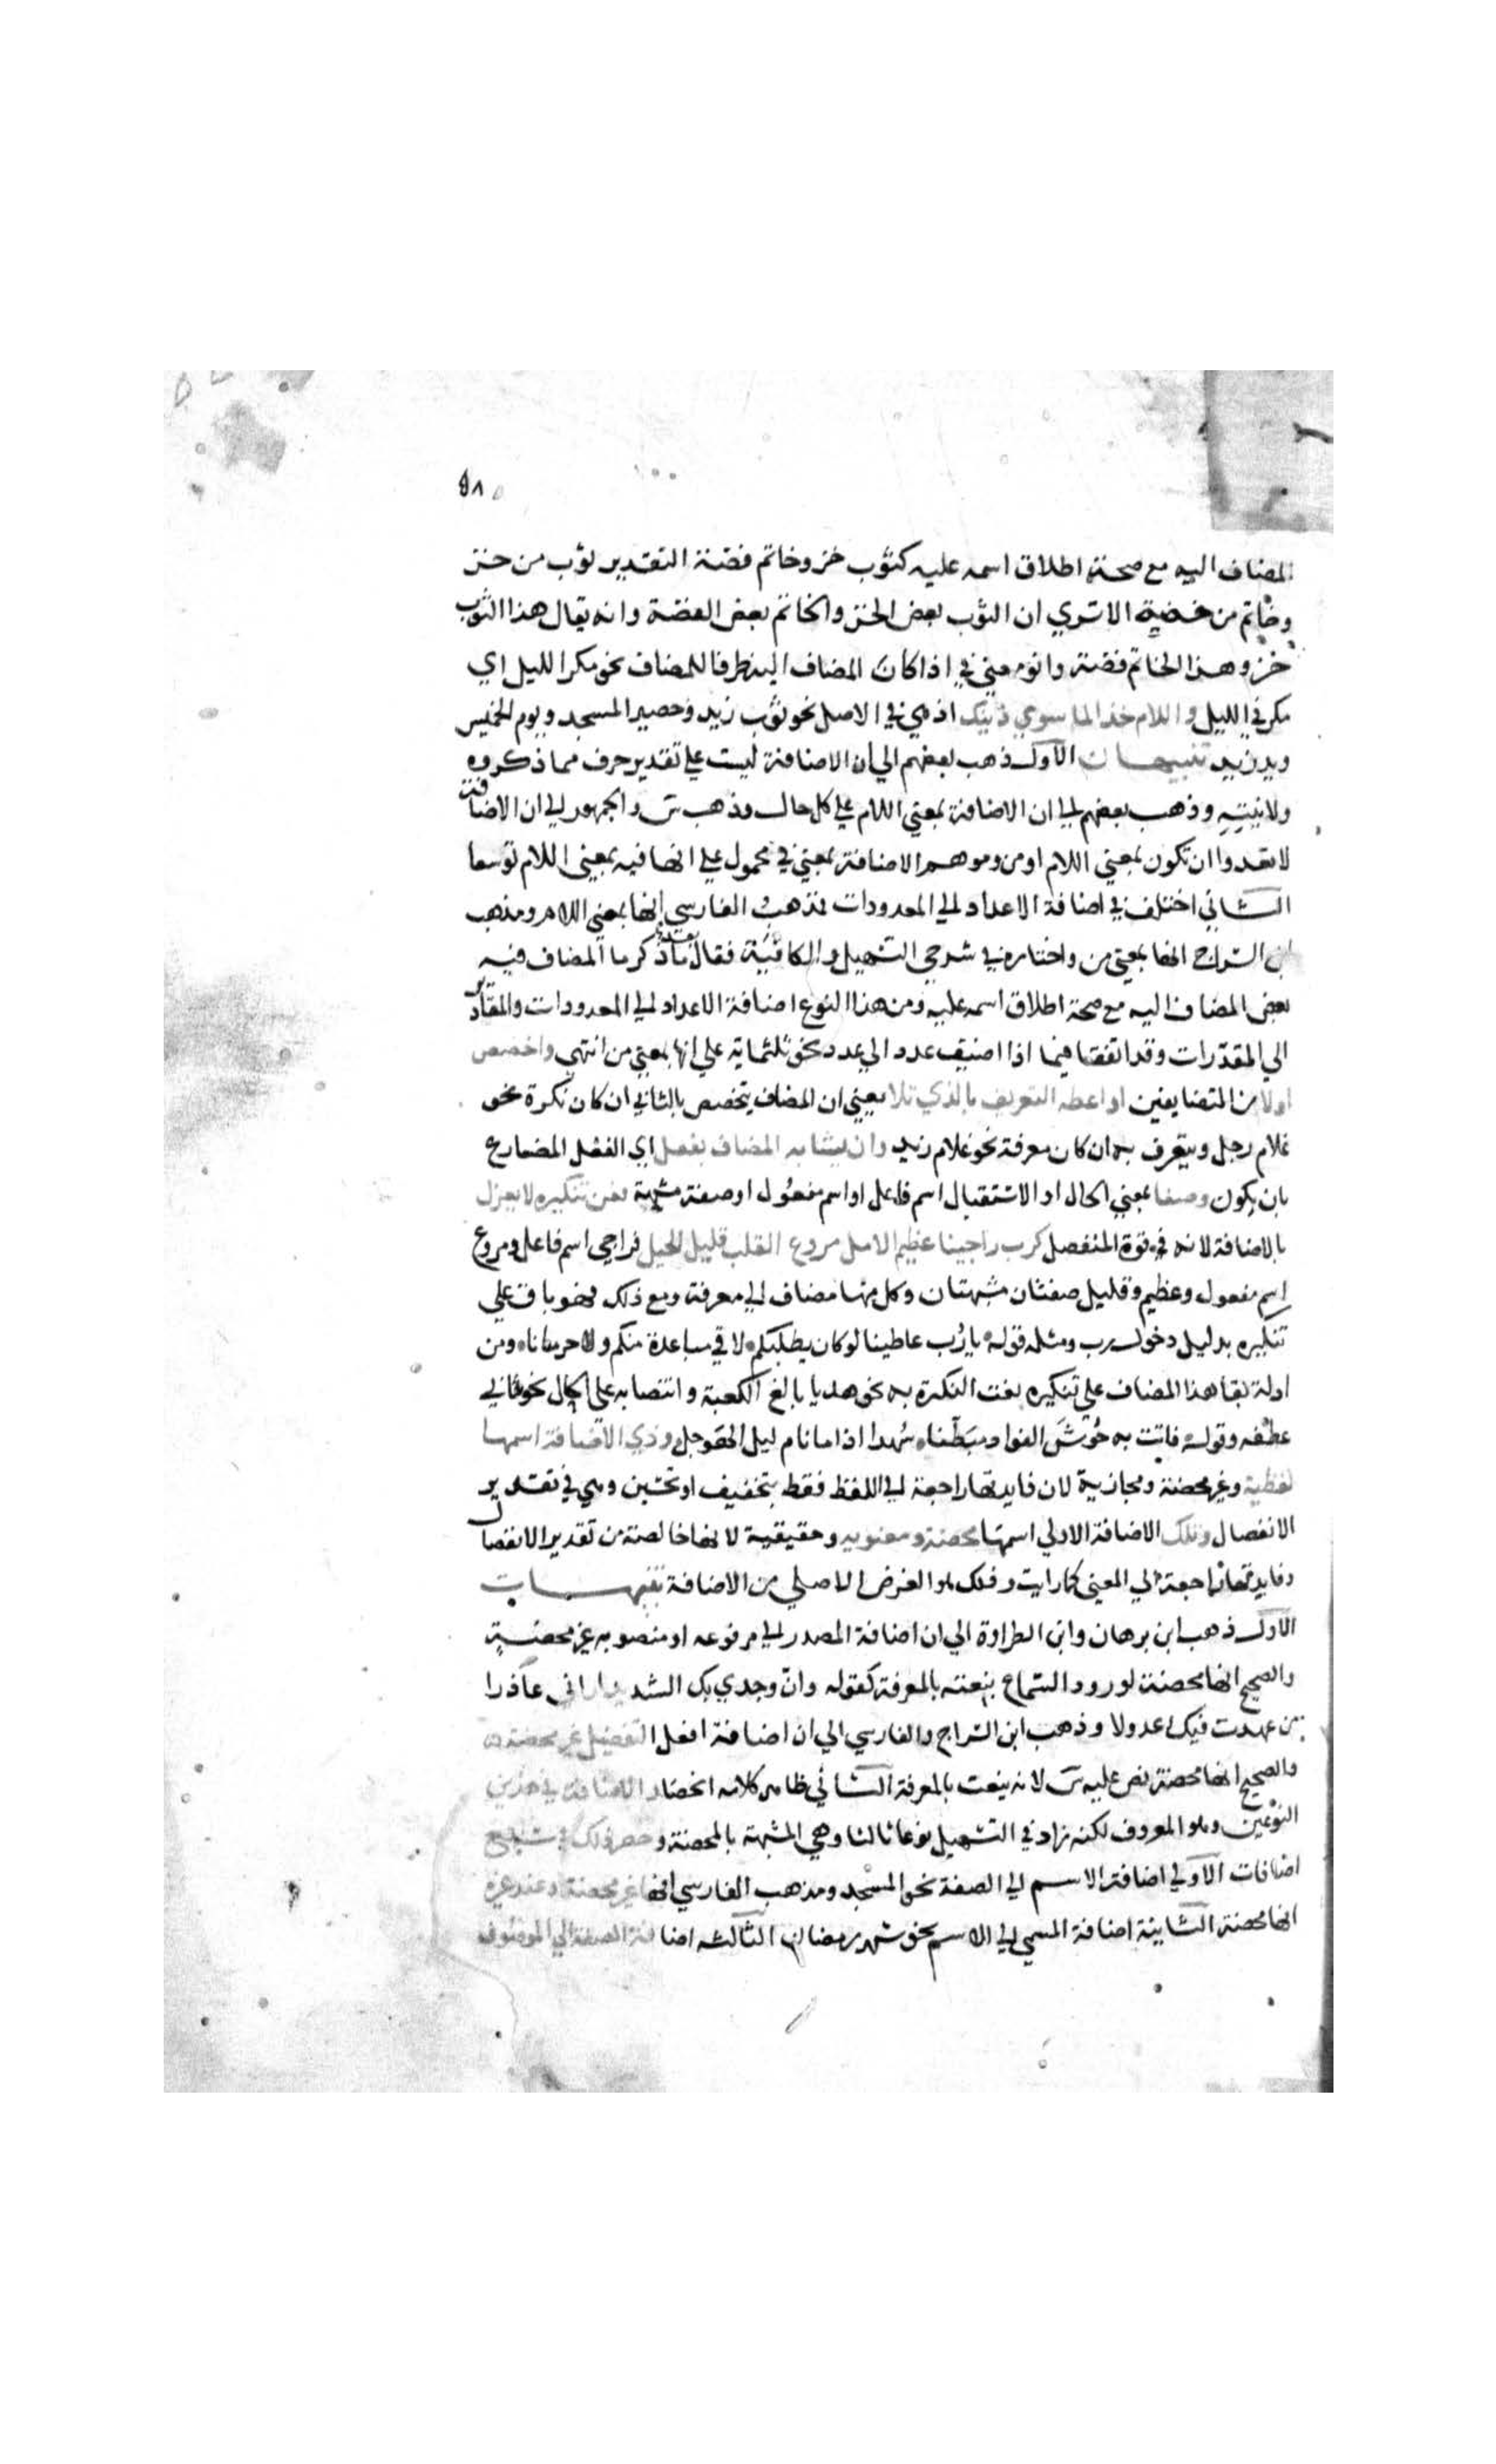 ٥٨
المضاف اليه مع صحة اطلاق اسمه عليه كثوب خز وخاتم فضة التقدير ثوب من خز
وخاتم من فضة الا تري ان الثوب بعض الخز والخاتم بعض الفضة وانه يقال هذا الثوب
خز وهذا الخاتم فضة وانو معني في اذا كان المضاف اليه ظرفا للمضاف نحو مكر الليل اي
مكر في الليل و اللام خذا لما سوي ذينك اذ هي في الاصل نحو ثوب زيد وحصير المسجد ويوم الخميس
ويد زيد تنبيهان الاول ذهب بعضهم الي ان الاضافة ليست علي تقدير حرف مما ذكروه
ولا نيته وذهب بعضهم الي ان الاضافة بمعني اللام علي كل حال وذهب س والجمهور الي ان الاضافة
لا تعدوا ان تكون بمعني اللام او من وموهم الاضافة بمعني في محمول علي انها فيه بمعني اللام توسعا
الثاني اختلف في اضافة الاعداد الي المعدودات فذهب الفارسي انها بمعني اللام ومذهب
ابن السراج انها بمعني من واختاره في شرحي التسهيل والكافية فقال بعد ما ذكر ما المضاف فيه
بعض المضاف اليه مع صحة اطلاق اسمه عليه ومن هذا النوع اضافة الاعداد الي المعدودات والمقادير
الي المقدرات وقد اتفقا فيما اذا اضيف عدد الي عدد نحو ثلثماية علي انها بمعني من انتهي واخصص
اولا من المتضايفين او اعطه التعريف بالذي تلا يعني ان المضاف يتخصص بالثاني ان كان نكرة نحو
غلام رجل ويتعرف به ان كان معرفة نحو غلام زيد وان يشابه المضاف يفعل اي الفعل المضارع
بان يكون وصفا بمعني الحال او الاستقبال اسم فاعل او اسم مفعول او صفة مشبهة فعن تنكيره لا يعزل
بالاضافة لانه في قوة المنفصل كرب راجينا عظيم الامل مروع القلب قليل الحيل فراجي اسم فاعل ومروع
اسم مفعول وعظيم وقليل صفتان مشبهتان وكل منها مضاف الي معرفة ومع ذلك فهو باق علي
تنكيره بدليل دخول رب ومثله قوله يا رب غابطنا لو كان يطلبكم لاقي مباعدة منكم وحرمانا ومن
ادلة بقا هذا المضاف علي تنكيره نعت النكرة به نحو هديا بالغ الكعبة وانتصابه علي الحال نحو ثاني
عطفه وقوله فاتت به حوش الفواد مبطنا سهدا اذا ما نام ليل الهوجل وذي الاضافة اسمها
لفظية وغير محضة ومجازية لان فايدتها راجعة الي اللفظ فقط بتخفيف او تحسين وهي في تقدير
الانفصال وتلك الاضافة الاولي اسمها محضة ومعنوية وحقيقية لانها خالصة من تقدير الانفصال
وفايدتها راجعة الي المعني كما رايت وذلك هو الغرض الاصلي من الاضافة تنبيهات
الاول ذهب ابن برهان وابن الطراوة الي ان اضافة المصدر الي مرفوعه او منصوبه غير محضة
والصحيح انها محضة لورود السماع بنعته بالمعرفة كقوله وان وجدي بك الشديد اراني عاذرا
من عهدت فيك عدولا وذهب ابن السراج والفارسي الي ان اضافة افعل التفضيل غير محضة
والصحيح انها محضة نص عليه س لانه ينعت بالمعرفة الثاني ظاهر كلامه انحصار الاضافة في هذين
النوعين وهو المعروف لكنه زاد في التسهيل نوعا ثالثا وهي المشبهة بالمحضة وحصر ذلك في سبع
اضافات الاولي اضافة الاسم الي الصفة نحو المسجد ومذهب الفارسي انها غير محضة وعند غيره
انها محضة الثانية اضافة المسمي الي الاسم نحو شهر رمضان الثالثة اضافة الصفة الي الموصوف